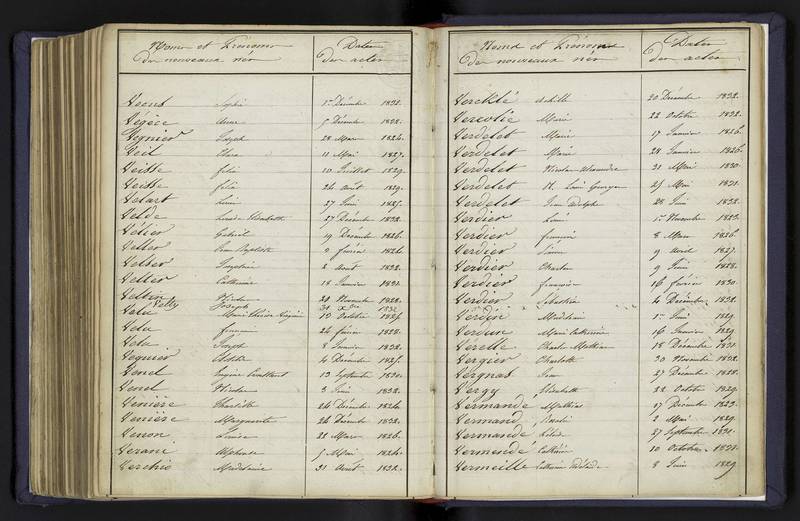 Noms et Prénoms
des nouveaux nés
Dates
des actes
Sophie 1er Décembre 1832.
Végèce Anne 5 Décembre 1828.
Vegnier Joseph 28 Mars 1824.
Veil Clara 11 Mai 1827.
Veisse félix 10 Juillet 1829.
Veisse félix 24 août 1829.
Velart Louis 27 Juin 1825.
Velde Louise Elisabeth 27 Décembre 1832.
Vélier Gabriel 19 Décembre 1826.
Velter Jean Baptiste 2 février 1826.
Velter Joséphine 2 Août 1832.
Velter Catherine 18 Janvier 1831.
Veltin Nicolas 21 Novembre 1828.
Velty Joseph 31 Xbre 1832
Velu Marie Thérèse 12 Octobre
Velu françois 24 février 1828.
Velu Joseph 8 Janvier 1832.
Clotilde 4 Décembre 1825.
Venel Constant 13 Septembre 1830.
Venel Nicolas 3 Juin 1832.
Venière Charlotte 24 Décembre 1826.
Venière Marguerite 24 Décembre 1832.
Venon Louise 22 Mars 1826.
Verani Alphonse 5 Mai 1826.
Verchio Madeleine 31 Août 1832.
Noms et Prénoms
des nouveaux nés
Dates
des actes
Verckle Achille 20 Décembre 1832.
Marie 22 Octobre 1832.
Verdelet Marie 17 Janvier 1826.
Verdelet Marie 28 Janvier 1826.
Verdelet Nicolas Alexandre 31 Mai 1830.
Verdelet N. Louis Georges 25 Mai 1831.
Verdelet Jean Adolphe 28 Juin 1832.
Verdier Louis 1er Novembre 1823.
Verdier françois 8 Mars 1826.
Verdier 9 Avril 1827.
Verdier Charles 9 Juin 1828.
Verdier françois 16 février 1830.
Verdier Sébastien 4 Décembre 1832.
Verdin Madeleine 1er Juin 1829
Verdun Marie Catherine 16 Janvier 1829.
Verelle Charles Mathias 18 Décembre 1831.
Vergier Charlotte 30 Novembre 1832.
Vergnas Jean 27 Décembre 1828.
Vergy Elisabeth 22 Octobre 1829.
Vermande Mathias 17 Décembre 1823.
Vermand 2 Mai 1829.
Vermande 27 Septembre 1831.
Vermende Catherine 10 Octobre 1831.
Vermeille Catherine Adélaïde 8 Juin 1829